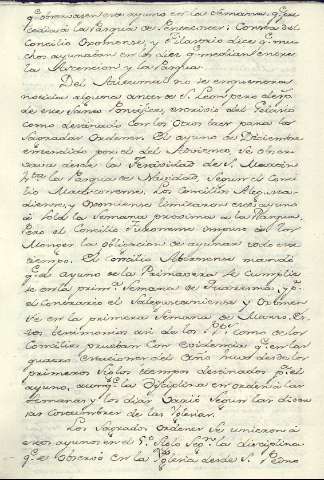 q.e observasen este ayuno en la semana, q.e pre
cedia a la Pasqua de Pentecostes: Consta del
Concilio Oxoniense; y Filastrio dice q.e mu
chos ayunaban en los diez q.e median entre
la Ascension y la Pasqua
Del Autumno no se encuentra
noticia alguna antes de S. Leon, pero desde
de este Santo Pontifice, escribio
como destinado con los otros tres para los
Sagrados Ordenes. El ayuno de Diciembre
entendido por el del Adviento, se obser
vaba desde la Festividad de S. Martin
h.ta la Pasqua de Navidad, segun el Conci
lio Matisconense. Los Concilios
y Oxoniense limitaron este ayuno
á sola la Semana proxima a la Pasqua.
Pero el Concilio Turonense impuso á los
Monges la obligacion de ayunar todo este
tiempo. El Concilio mandó
q.e el ayuno de la Primavera se cumplie
se en la prim.a Semana de Quaresma, y p.r
el contrario el Salegunstadiense y Oxonien
se en la primera Semana de Marzo. Es
tos testimonios asi de los P.P. como de los
Concilios prueban con evidencia q.e en las
quatro Estaciones del Año hubo desde los
primeros siglos tiempos destinados p.a el
ayuno, aunq.e la Disciplina en orden á las
Semanas y los dias varió segun las diver
sas costumbres de las Yglesias.
Los Sagrados Ordenes se unieron á
estos ayunos en el 5.o Siglo seg.n la disciplina
q.e se observó en la Yglesia desde S. Pedro